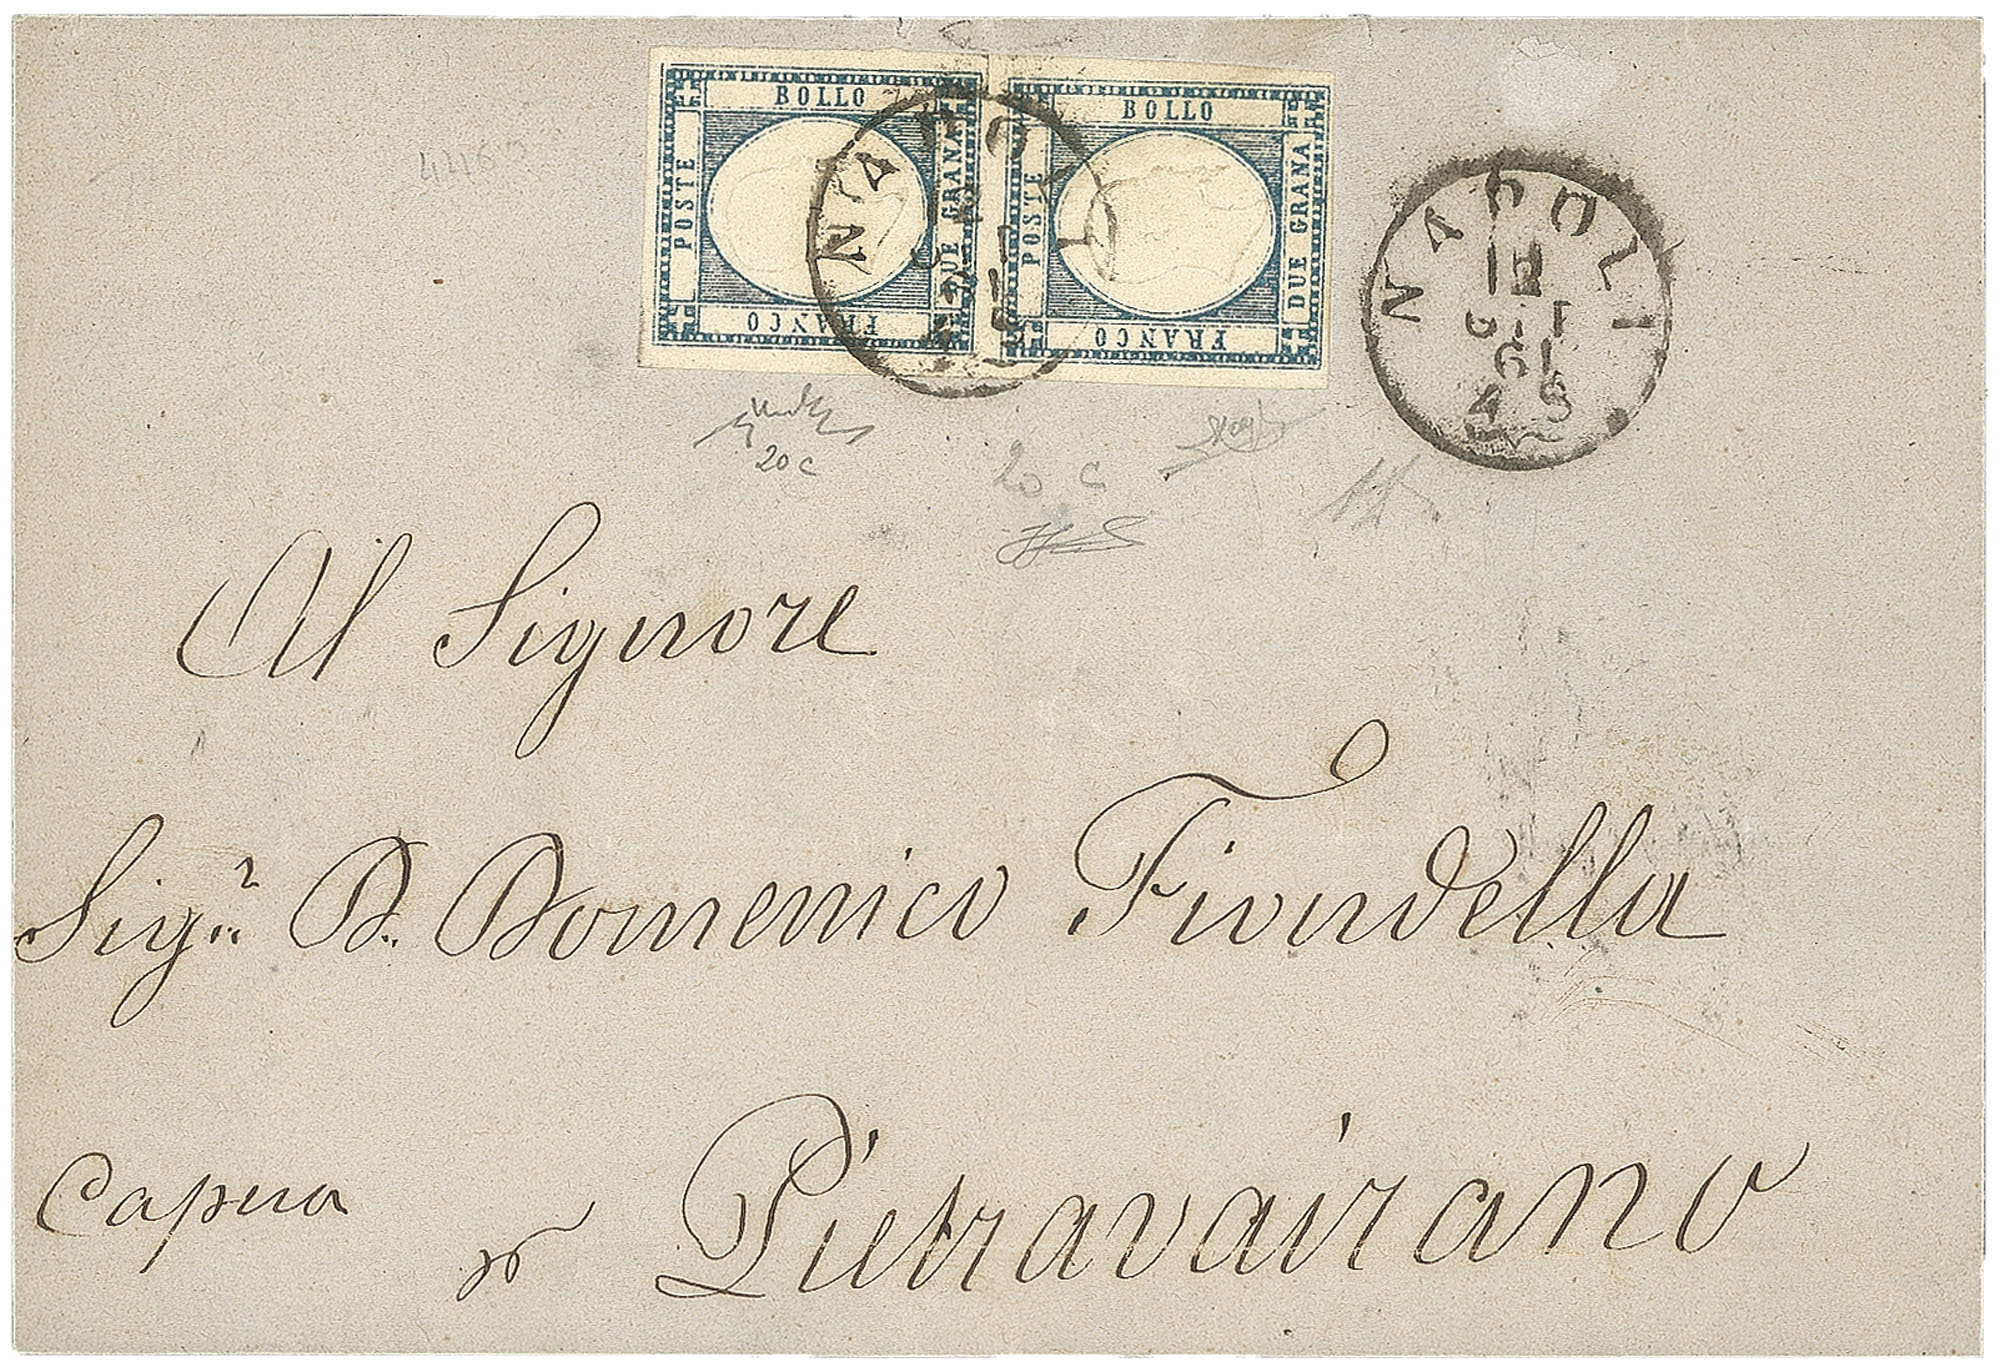 BOLLO
POSTE
DUE GRANA
FRANCO
BOLLO
POSTE
DUE GRANA
FRANCO
NAPOLI
NAPOLI
12
61
4 S
20 c
20 c
Al Signore
Sigr. D. Domenico Fiondella
Capua
Pietravairano